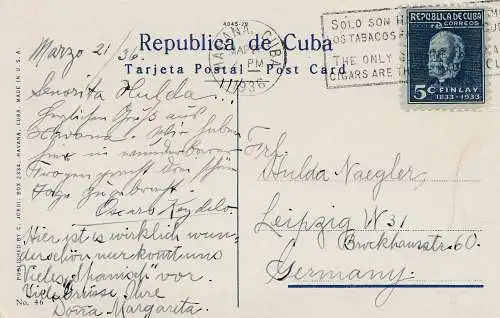 4045-29
Republica de Cuba
Tarjeta Postal — Post Card
HABANA, CUBA
PM
1936
SOLO SON H
OS TABACOS
THE ONLY
CIGARS ARE THE
REPUBLICA DE CUBA
5¢ FINLAY
1833-1933
Marzo 21/36.
Senorita Hulda..
Herzlichen Gruß aus
Havana. Wir haben
hier in wunderbaren
schön
Tage
Oscaro
Hier ist es wirklich wun-
derschön nur kommt uns
Vieles "spanisch" vor.
Viele Grüsse Ihre
Dorra Margareta.
Frl.
Hulda Naegler,
Leipzig W 31
Brockhausstr. 60.
Germany.
PUBLISHED BY C. JORDI, BOX 2286, HAVANA, CUBA. MADE IN U.S.A.
No. 46